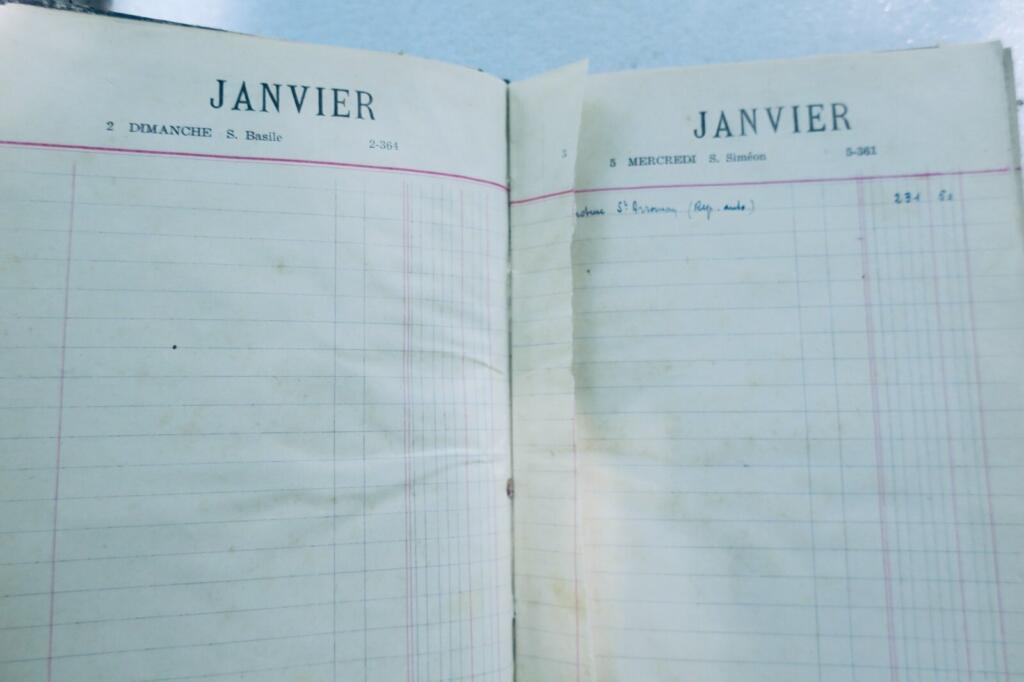 JANVIER
2 DIMANCHE S. Basile 2-364
3
JANVIER
5 MERCREDI S. Siméon 5-361
(Rep. auto.) 231 50